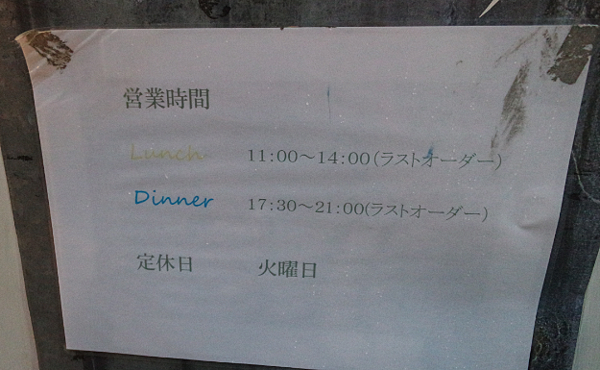 営業時間
Lunch 11:00～14:00(ラストオーダー)
Dinner 17:30～21:00(ラストオーダー)
定休日 火曜日